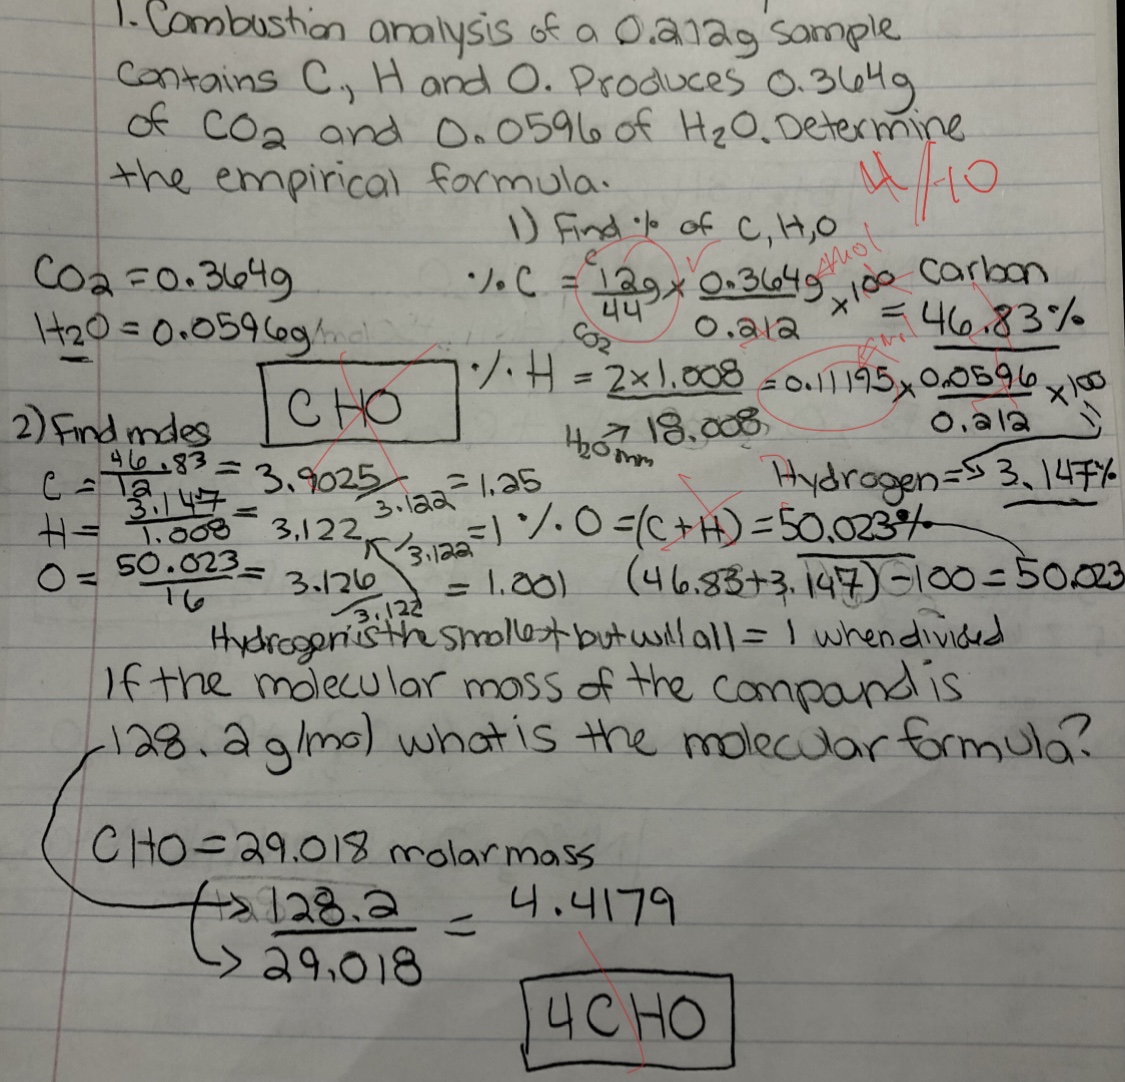 1. Combustion analysis of a 0.212g sample
contains C, H and O. Produces 0.364g
of CO2 and 0.0596 of H2O. Determine
the empirical formula.
4/10
1) Find % of C, H, O
CO2 = 0.364g
% C = 12g/44 x 0.364g/0.212 x 100 = 46.83%
C
CO2
carbon
H2O = 0.0596g
CHO
% H = 2x1.008/18.008 = 0.11195 x 0.0596/0.212 x 100
H2O mm
Hydrogen = 3.147%
2) Find moles
C = 46.83/12 = 3.9025/3.122 = 1.25
H = 3.147/1.008 = 3.122/3.122 = 1
% O = (C + H) = 50.023%
O = 50.023/16 = 3.126/3.122 = 1.001
(46.83+3.147) - 100 = 50.023
Hydrogen is the smallest but will all = 1 when divided
If the molecular mass of the compand is
128.2 g/mol what is the molecular formula?
CHO = 29.018 molar mass
128.2/29.018 = 4.4179
4CHO